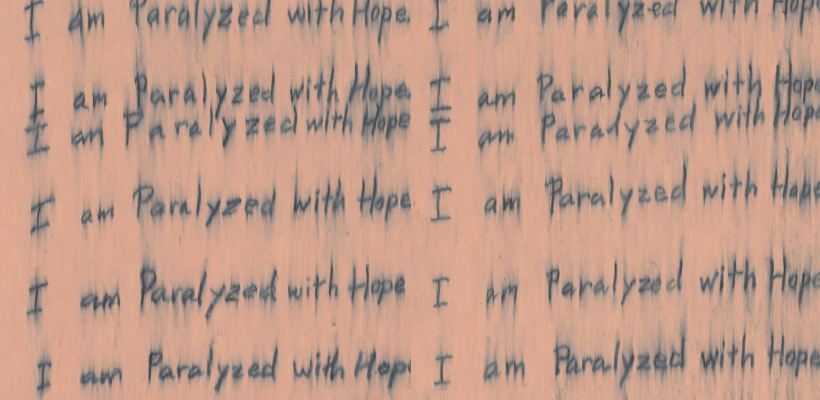 I am Paralyzed with Hope. I am Paralyzed with Hope
I am Paralyzed with Hope. I am Paralyzed with Hope
I am Paralyzed with Hope I am Paralyzed with Hope
I am Paralyzed with Hope I am Paralyzed with Hope
I am Paralyzed with Hope I am Paralyzed with Hope
I am Paralyzed with Hop I am Paralyzed with Hope